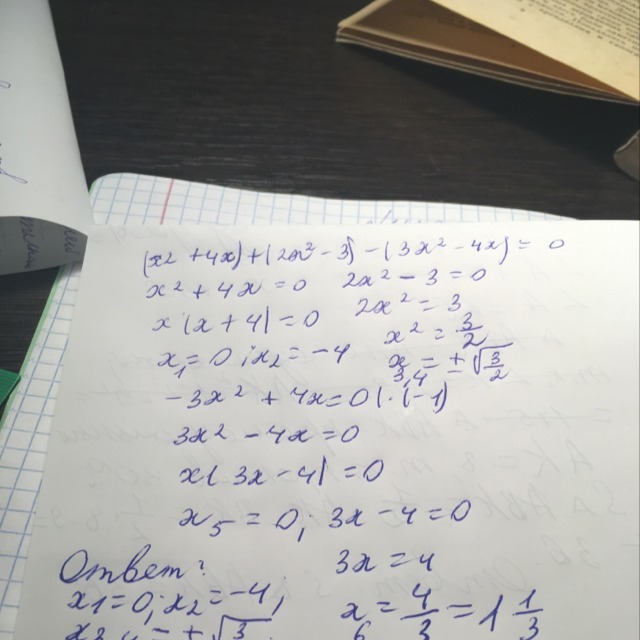 (x2 + 4x) + (2x² - 3) - (3x² - 4x) = 0
x² + 4x = 0 2x² - 3 = 0
x (x + 4) = 0 2x² = 3
x² = 3/2
x₁ = 0; x₂ = -4 x₃,₄ = ±√3/2
-3x² + 4x = 0 | · (-1)
3x² - 4x = 0
x( 3x - 4) = 0
x₅ = 0; 3x - 4 = 0
Ответ: 3x = 4
x1 = 0; x2 = -4; x₆ = 4/3 = 1 1/3